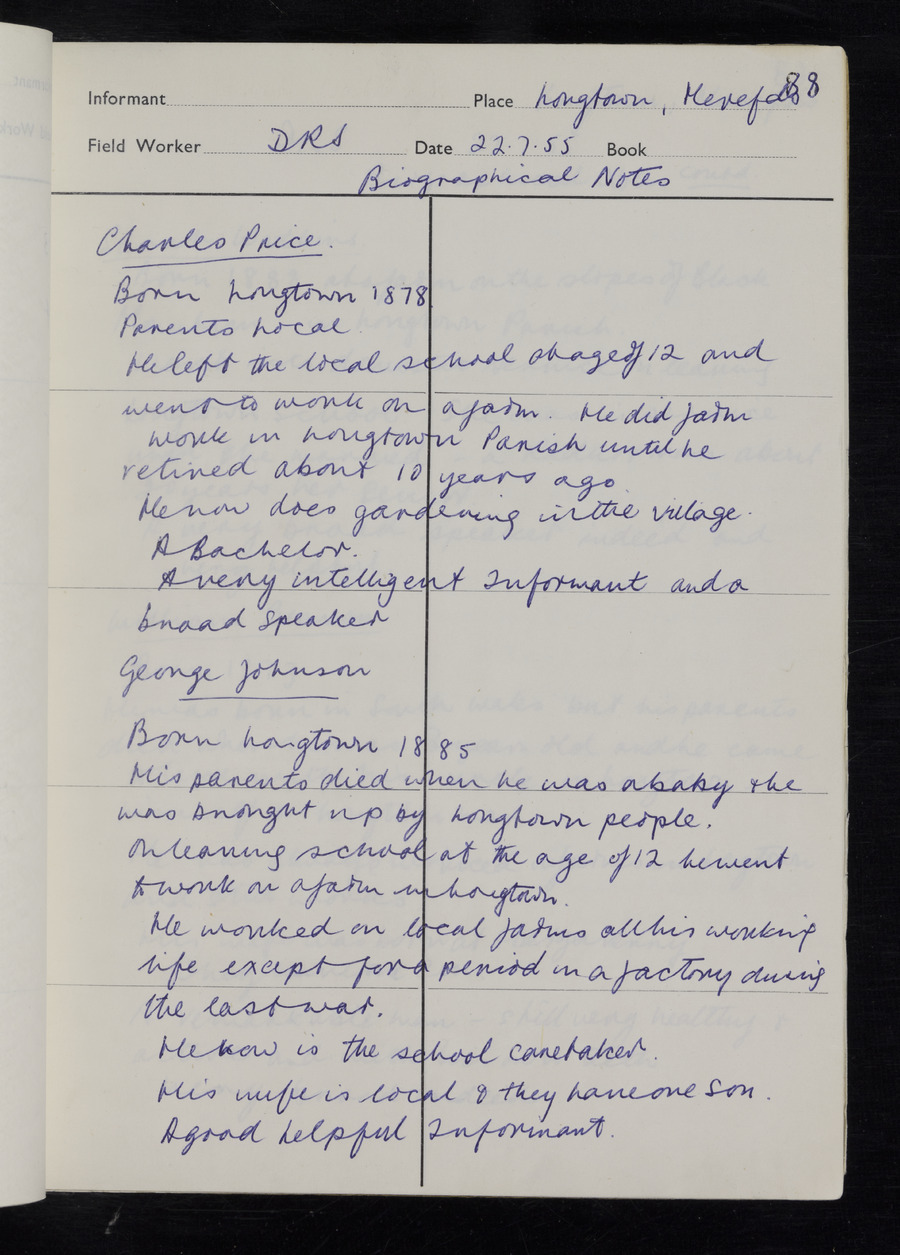 88
Informant Place Longtown, Herefds
Field Worker DRS Date 22.7.55 Book
Biographical Notes
Charles Price.
Born Longtown 1878.
Parents Local.
He left the local school at age of 12 and
went to work on a farm. He did farm
work in Longtown Parish until he
retired about 10 years ago
He now does gardening in the village.
A Bachelor.
A very intelligent Informant and a
broad speaker
George Johnson
Born Longtown 1885
His parents died when he was a baby & he
was brought up by Longtown people.
On leaving school at the age of 12 he went
to work on a farm in Longtown.
He worked on local farms all his working
life except for a period in a factory during
the last war.
He now is the school caretaker.
His wife is local & they have one son.
A good helpful Informant.